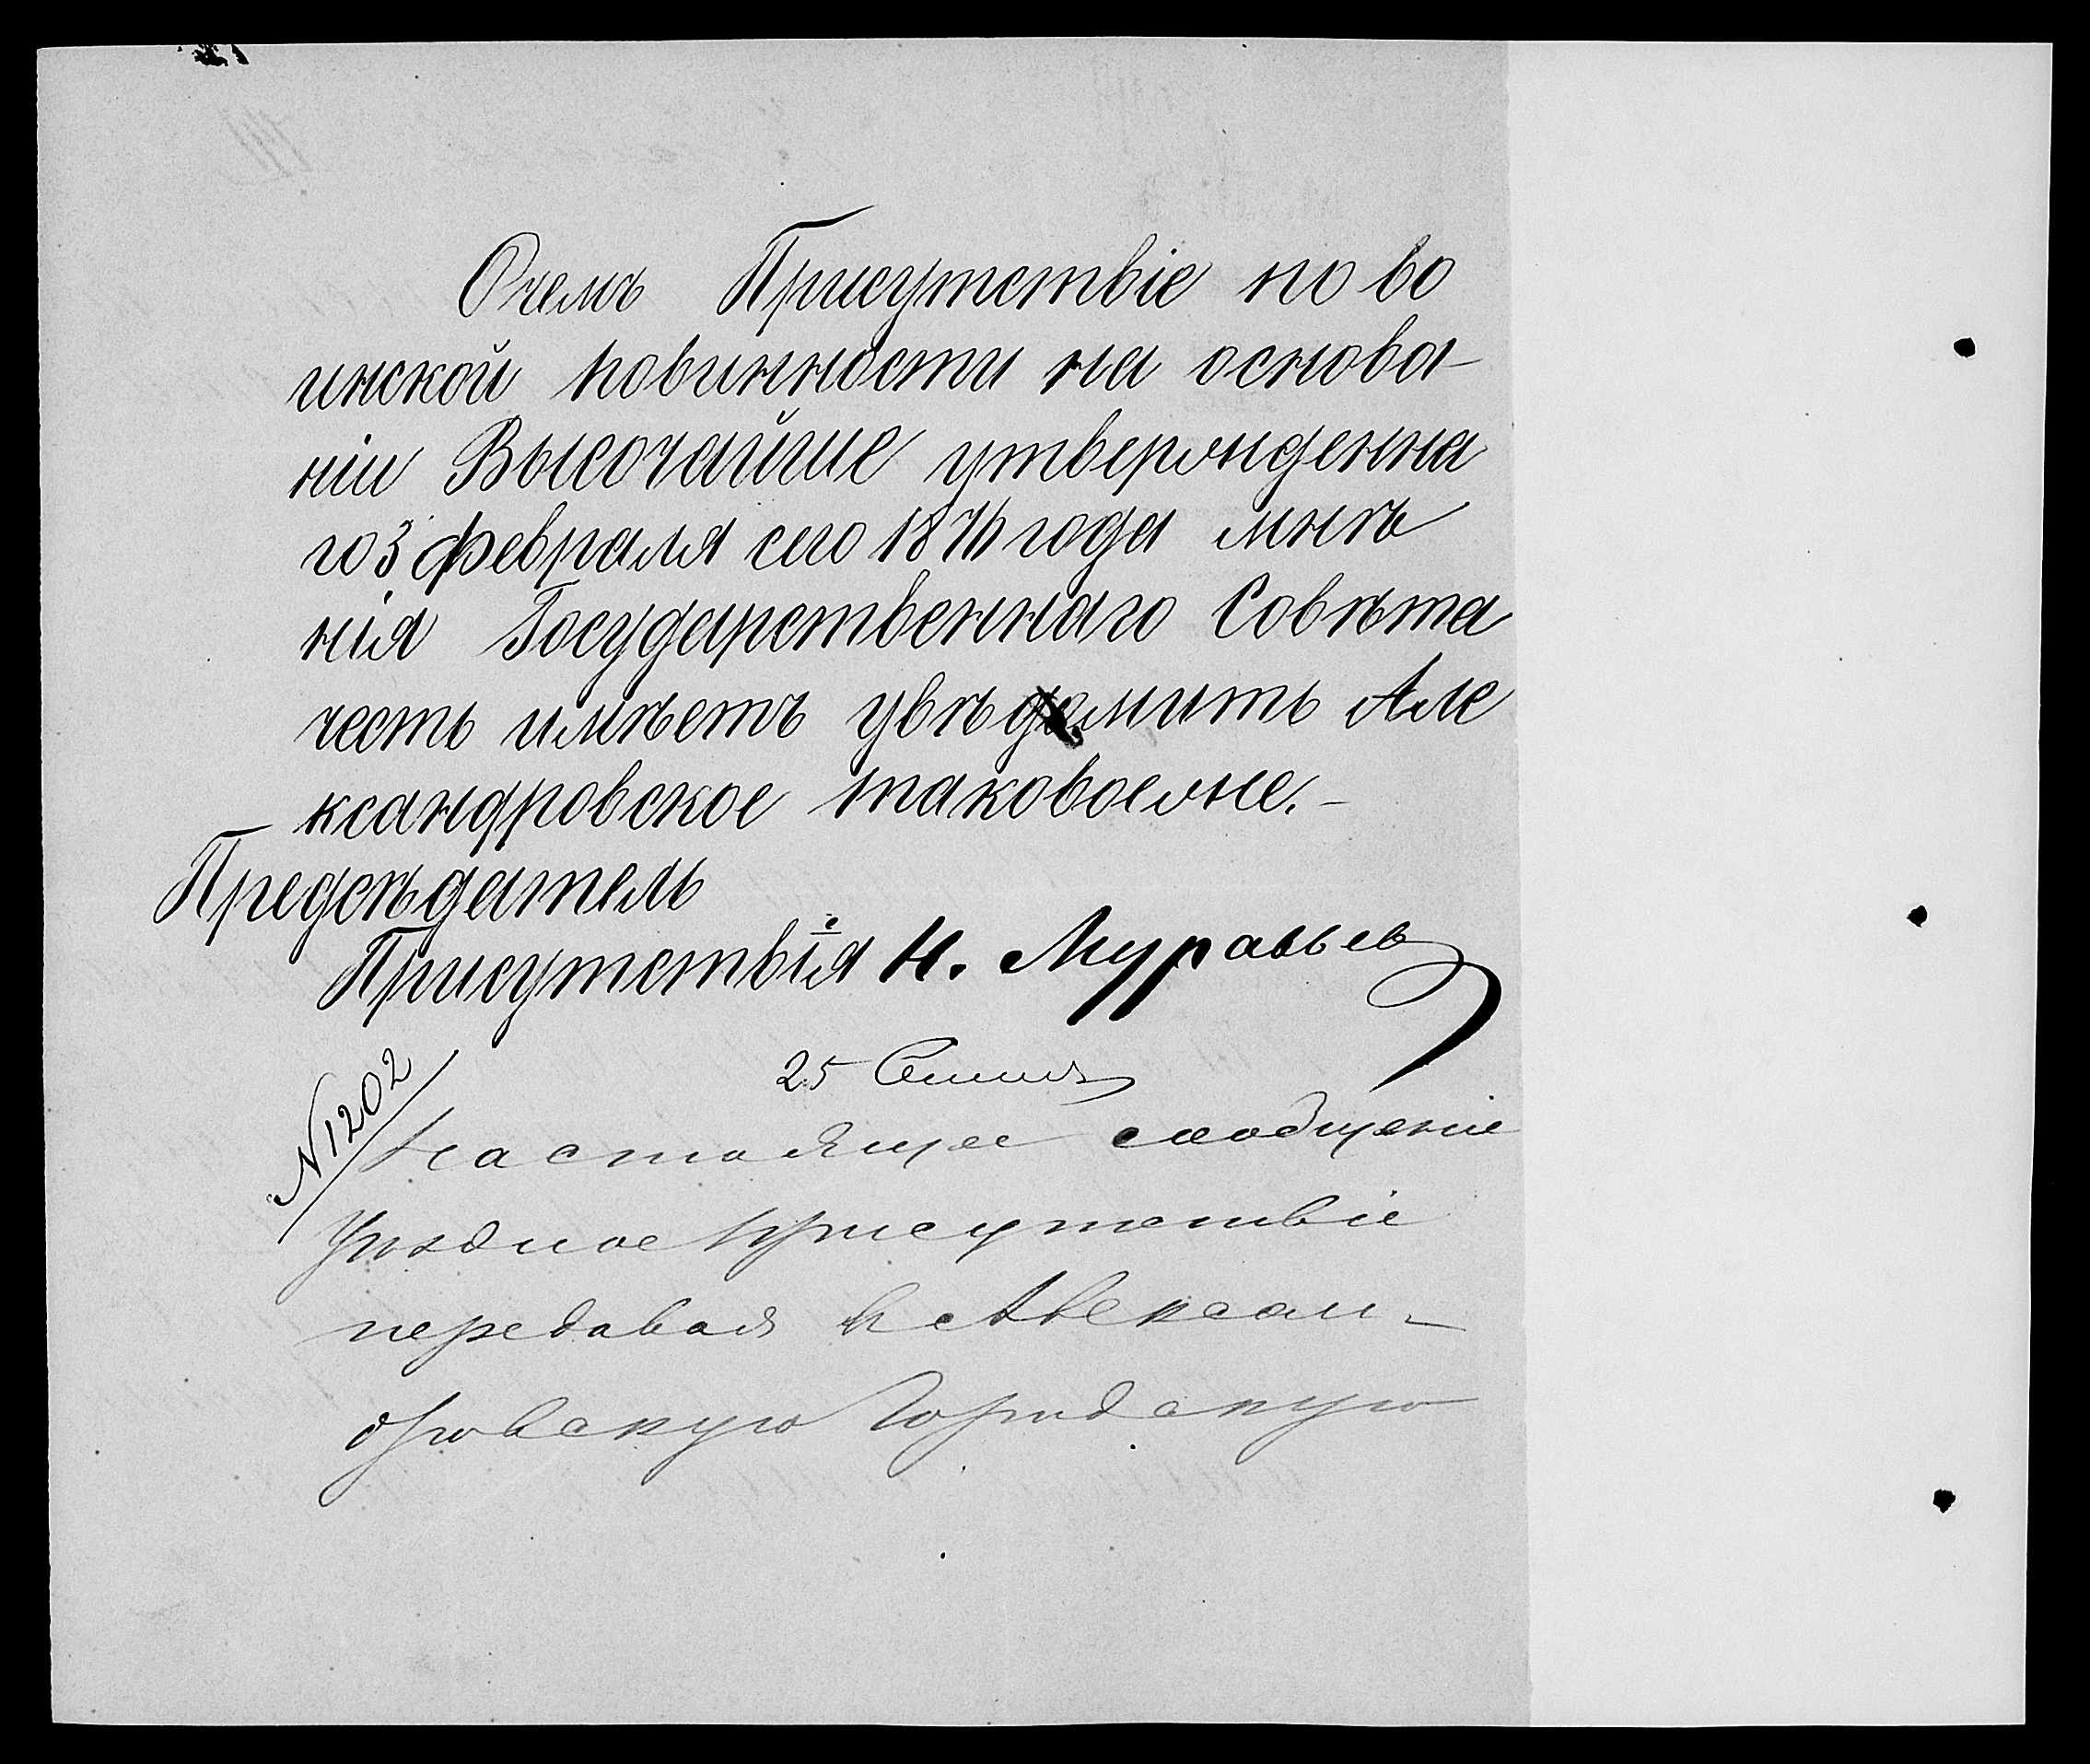 Очемъ Присутствіе по во
инской повинности на основа-
ніи Высочайше утвержденна
го 3 февраля сего 1876 года мнѣ
нія Государственнаго Совѣта
честь имѣетъ увѣдомить Але
ксандровское таковоеже.-
Предсѣдатель
Присутствія Н. Муравьев
25 Сентя
№ 1202
Настоящее сообщеніе
Уѣздное присутствіе
передавая в Алексан-
дровскую Городскую